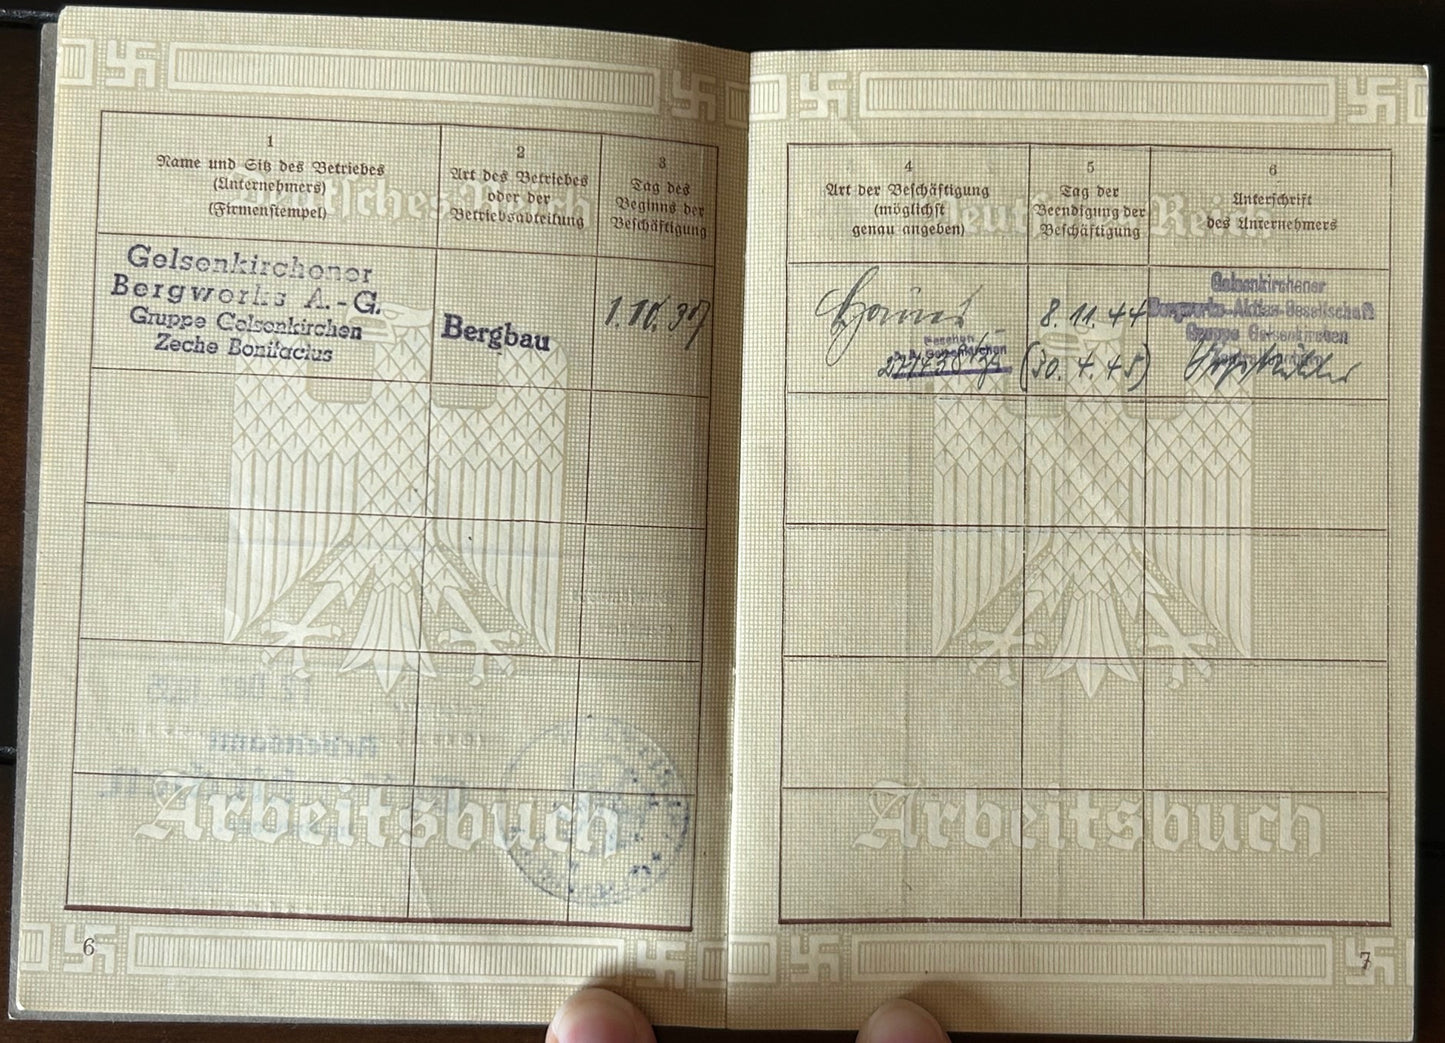 1
Name und Sitz des Betriebes
(Unternehmers)
(Firmenstempel)
2
Art des Betriebes
oder der
Betriebsabteilung
3
Tag des
Beginns der
Beschäftigung
Gelsenkirchener
Bergwerks A.-G.
Gruppe Gelsenkirchen
Zeche Bonifacius
Bergbau
1.10.37
Deutsches Reich
Arbeitsbuch
6
4
Art der Beschäftigung
(möglichst
genau angeben)
5
Tag der
Beendigung der
Beschäftigung
6
Unterschrift
des Unternehmers
8.11.44
(30.4.45)
Gelsenkirchener
Bergwerks-Aktien-Gesellschaft
Gruppe Gelsenkirchen
Gesehen
Gelsenkirchen
Deutsches Reich
Arbeitsbuch
7